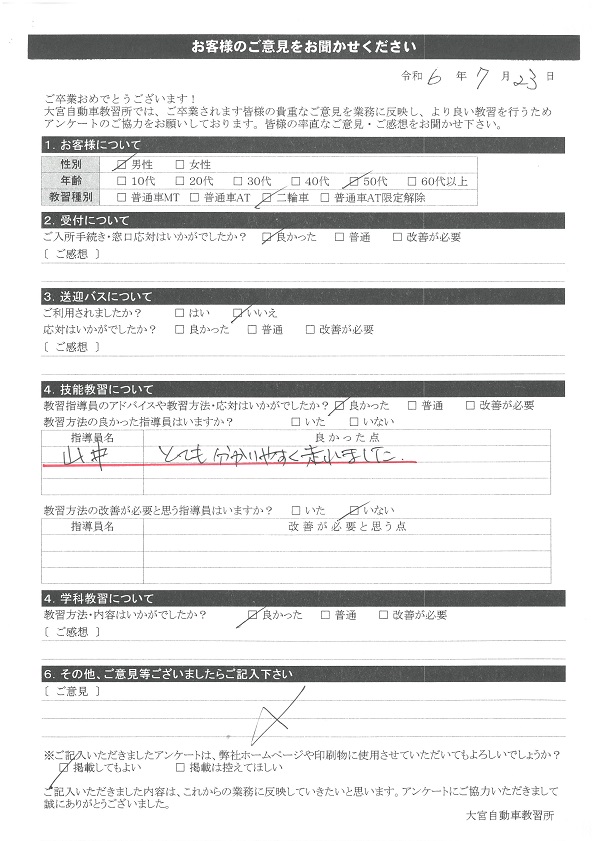 お客様のご意見をお聞かせください
令和 6 年 7 月 23 日
ご卒業おめでとうございます！
大宮自動車教習所では、ご卒業されます皆様の貴重なご意見を業務に反映し、より良い教習を行うため
アンケートのご協力をお願いしております。皆様の率直なご意見・ご感想をお聞かせ下さい。
1. お客様について
性別 □ 男性 □ 女性
年齢 □ 10代 □ 20代 □ 30代 □ 40代 □ 50代 □ 60代以上
教習種別 □ 普通車MT □ 普通車AT □ 二輪車 □ 普通車AT限定解除
2. 受付について
ご入所手続き・窓口応対はいかがでしたか？ □ 良かった □ 普通 □ 改善が必要
〔 ご感想 〕
3. 送迎バスについて
ご利用されましたか？ □ はい □ いいえ
応対はいかがでしたか？ □ 良かった □ 普通 □ 改善が必要
〔 ご感想 〕
4. 技能教習について
教習指導員のアドバイスや教習方法・応対はいかがでしたか？ □ 良かった □ 普通 □ 改善が必要
教習方法の良かった指導員はいますか？ □ いた □ いない
指導員名 良かった点
山中 とても分かりやすく走れました.
教習方法の改善が必要と思う指導員はいますか？ □ いた □ いない
指導員名 改善が必要と思う点
4. 学科教習について
教習方法・内容はいかがでしたか？ □ 良かった □ 普通 □ 改善が必要
〔 ご感想 〕
6. その他、ご意見等ございましたらご記入下さい
〔 ご意見 〕
※ご記入いただきましたアンケートは、弊社ホームページや印刷物に使用させていただいてもよろしいでしょうか？
□ 掲載してもよい □ 掲載は控えてほしい
ご記入いただきました内容は、これからの業務に反映していきたいと思います。アンケートにご協力いただきまして
誠にありがとうございました。
大宮自動車教習所